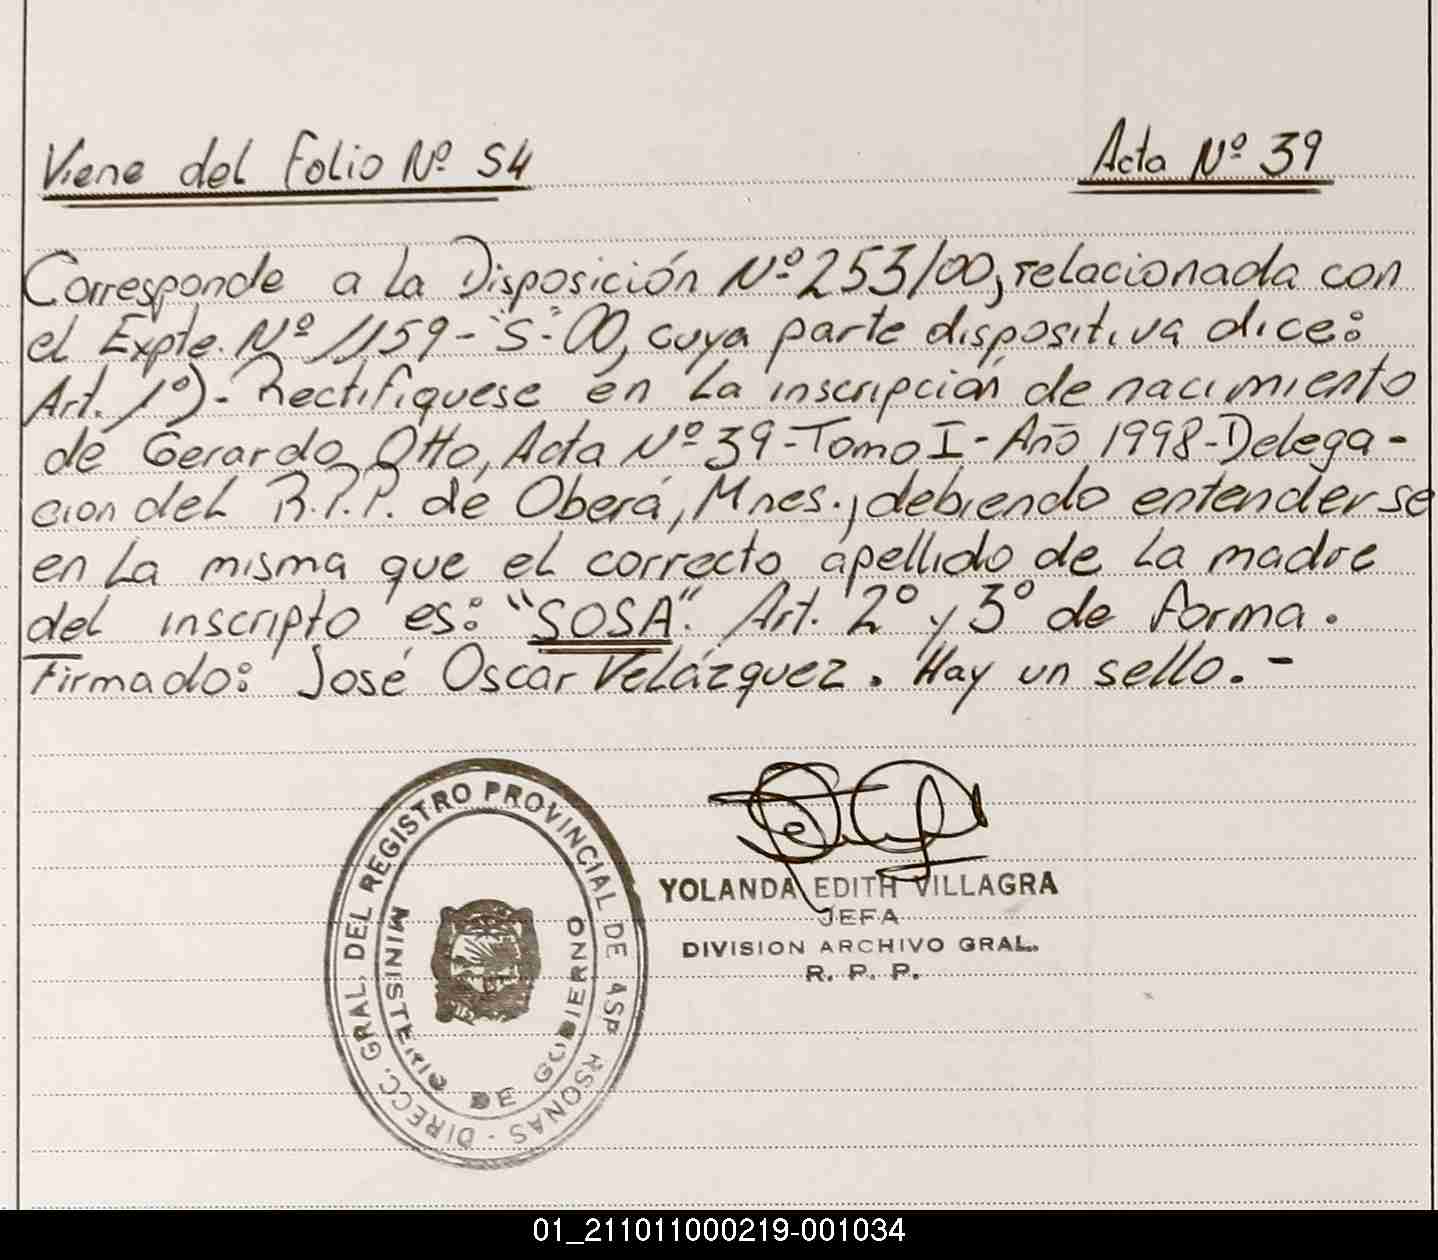 Viene del Folio Nº 54 Acta Nº 39
Corresponde a la Disposición Nº 253/00, relacionada con
el Expte. Nº 1159-"S"-00, cuya parte dispositiva dice:
Art. 1º)- Rectifíquese en la inscripción de nacimiento
de Gerardo Otto, Acta Nº 39-Tomo I-Año 1998-Delega-
cion del R.P.P. de Oberá, Mnes., debiendo entenderse
en la misma que el correcto apellido de la madre
del inscripto es: "SOSA". Art. 2º y 3º de forma.
Firmado: José Oscar Velázquez. Hay un sello.-
DIRECC. GRAL. DEL REGISTRO PROVINCIAL DE LAS PERSONAS
MINISTERIO DE GOBIERNO
YOLANDA EDITH VILLAGRA
JEFA
DIVISION ARCHIVO GRAL.
R. P. P.
01_211011000219-001034